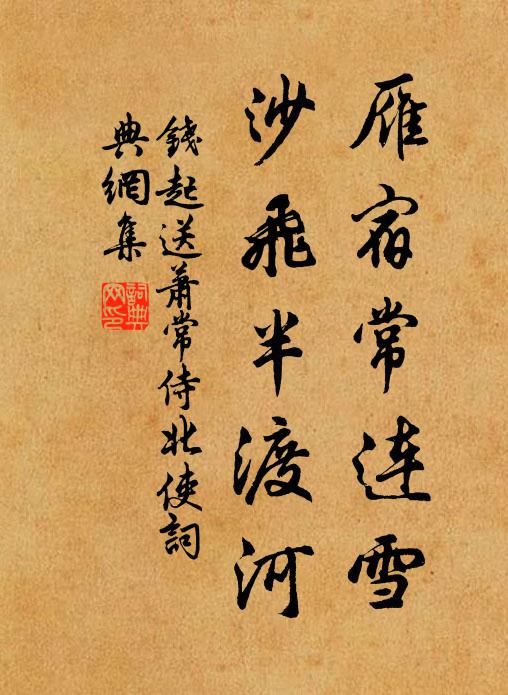 雁宿常連雪
沙飛半渡河
錢起送蕭常侍北使詞
典網集
詞典
网印